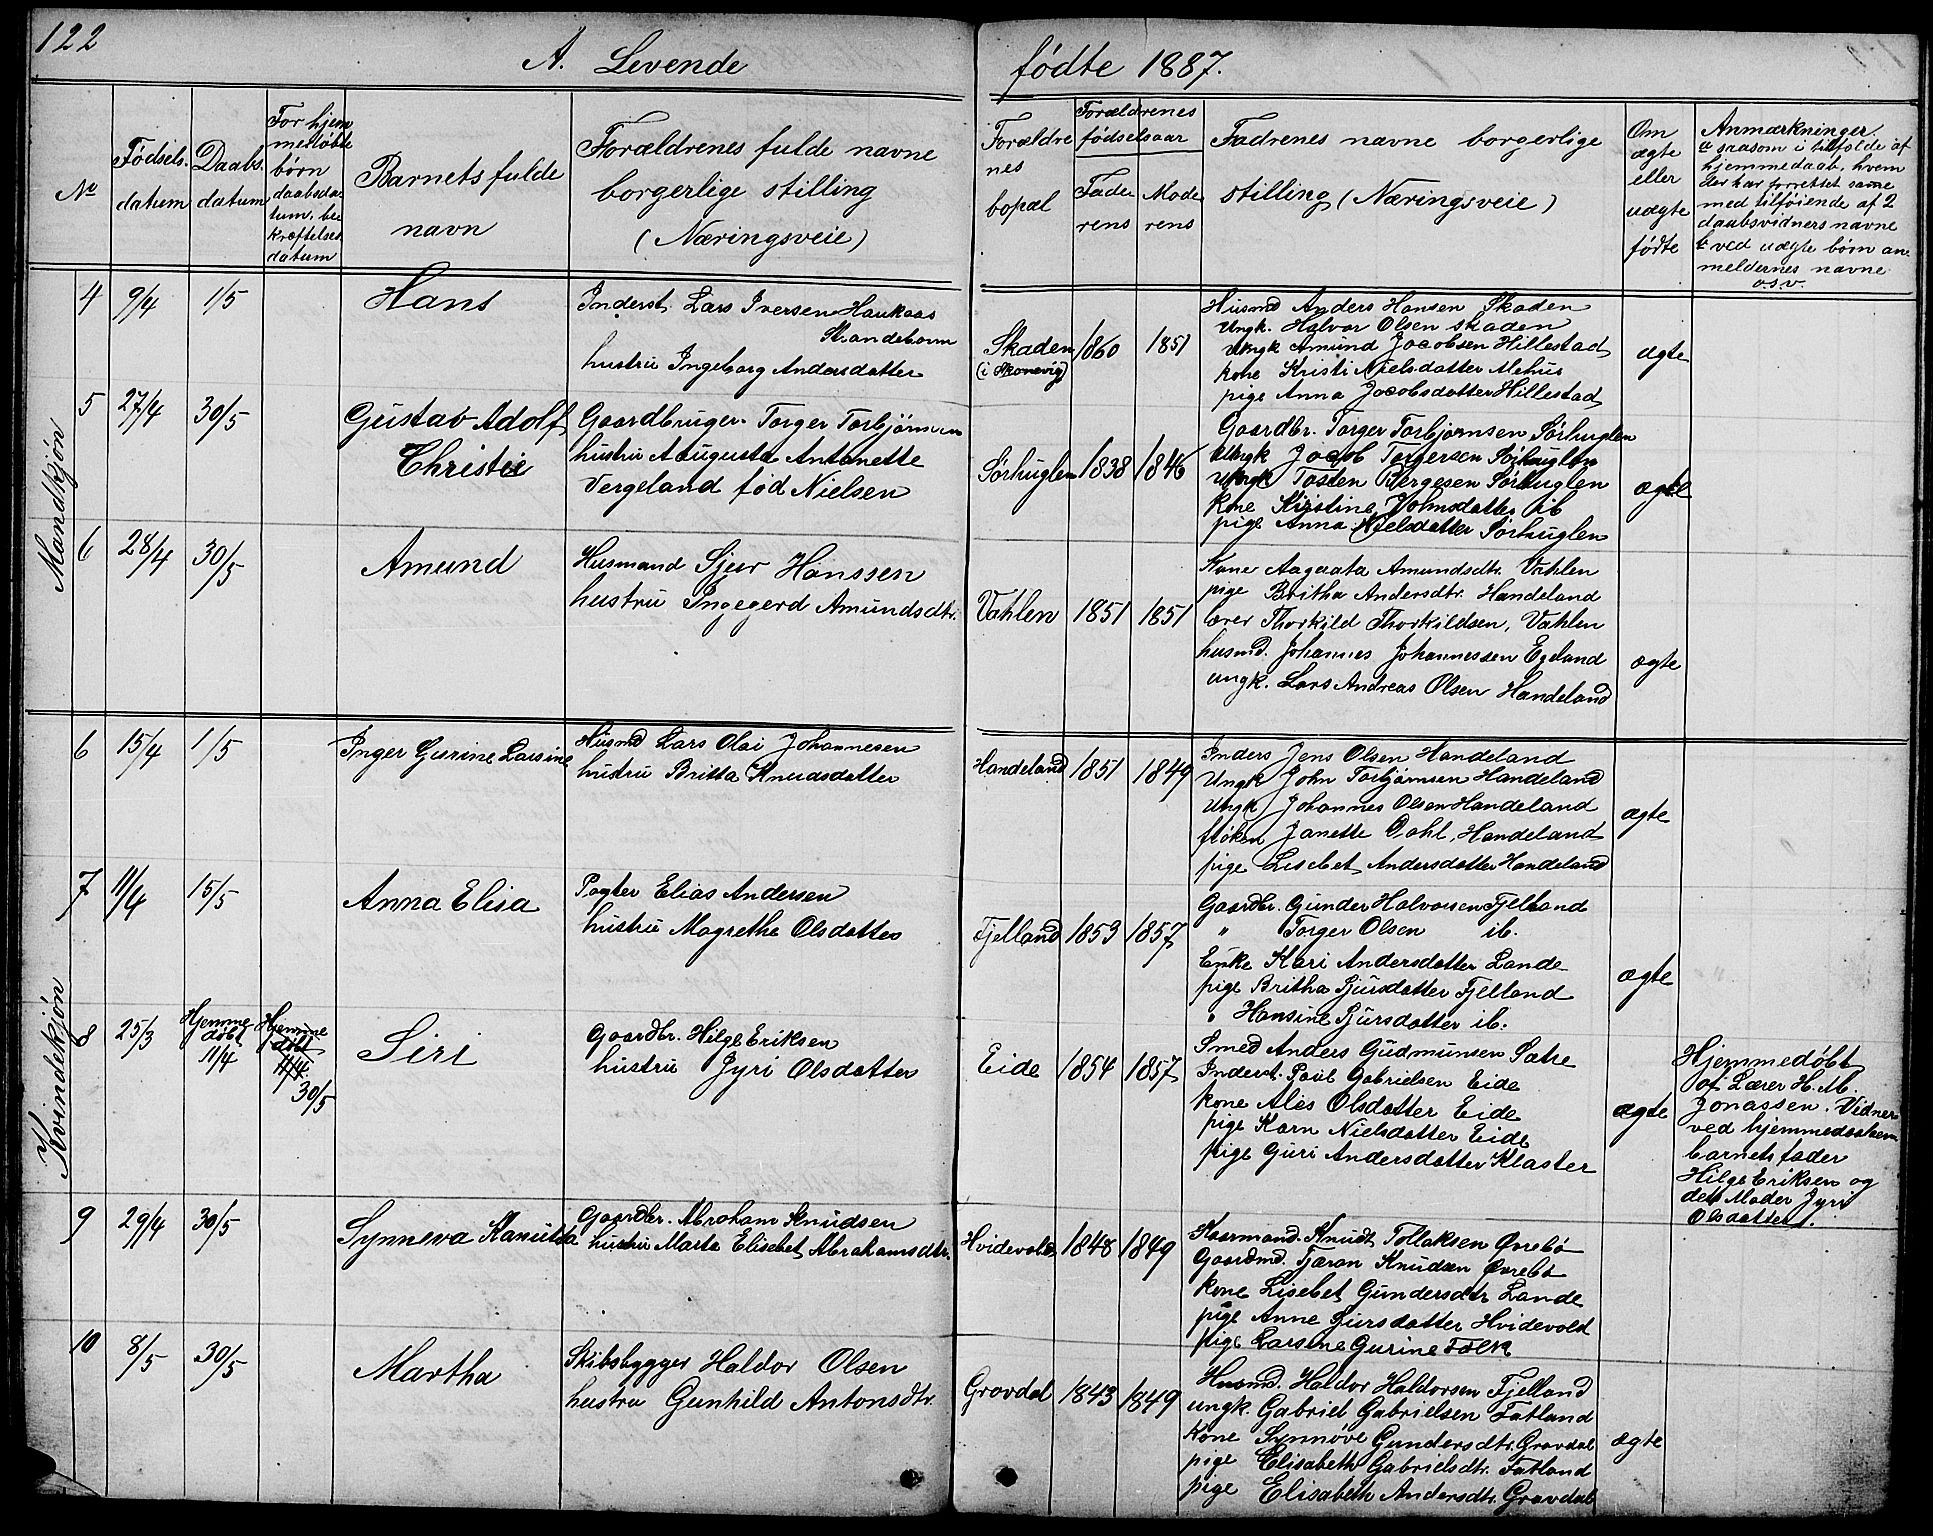 122
A. Levende
fødte 1887.
Nr
Fødsels-
datum
Daabs-
datum
For hjem
medøbte
børn
daabsda-
tum, be
kræftelses
datum
Barnets fulde
navn
Forældrenes fulde navne
borgerlige stilling
(Næringsveie)
Forældre
nes
bopæl
Forældrenes
fødselsaar
Fade
rens
Mode
rens
Fadrenes navne borgerlige
stilling (Næringsveie)
Om
ægte
eller
uægte
fødte
Anmærkninger
saasom i tilfælde af
hjemmedaab, hvem
der har forrettet samme
med tilføiende af 2
daabsvidners navne
ved uægte børn an-
meldernes navne
o.s.v.
Mandkjøn
4 9/4 1/5 Hans
Inderst Lars Iversen Haukaas
hustru Ingeborg Andersdatter
Skaden
(i Skonevig)
1860 1851
Husmd Anders Hansen Skaden
Ungk. Halvor Olsen Skaden
Ungk Amund Jacobsen Hillestad
kone Kristi Nielsdatter Mehus
pige Anna Jacobsdatter Hillestad
ægte
5 27/4 30/5 Gustav Adolf
Christie
Gaardbruger Torger Torbjørnsen
hustru Augusta Antonette
Vergeland fød Nielsen
Sørhuglen 1838 1846
Gaardbr. Torger Torbjørnsen Sørhuglen
Ungk Jacob Torgersen Sørhuglen
Ungk Tosten Sørhuglen
kone Kirstine Johnsdatter ib
pige Anna Nielsdatter Sørhuglen
ægte
6 28/4 30/5 Amund
Husmand Sjur Hanssen
hustru Ingegerd Amundsdtr.
Vahlen 1851 1851
Kone Aagaata Amundsdtr. Vahlen
pige Britha Andersdtr. Handeland
lærer Thorkild Thorkildsen, Vahlen
husmd. Johannes Johannessen Egeland
ungk. Lars Andreas Olsen Handeland
ægte
Kvindekjøn
6 15/4 1/5 Inger Gurine Larsine
Husmd Lars Olai Johannesen
hustru Britta Knudsdatter
Handeland 1851 1849
Inders Jens Olsen Handeland
Ungk John Torbjørnsen Handeland
Ungk Johannes Olsen Handeland
frøken Janette Dahl, Handeland
pige Lisebet Andersdatter Handeland
ægte
7 11/4 15/5 Anna Elisa
Pagter Elias Andersen
hustru Magrethe Olsdatter
Fjelland 1853 1857
Gaardbr. Gunder Halvorsen Fjelland
" Torger Olsen ib.
Enke Kari Andersdatter Lande
pige Britha Sjursdatter Fjelland
" Hansine Sjursdatter ib.
ægte
8 25/3
Hjemme
døbt
11/4
Hjemme
døbt
11/4
30/5
Siri
Gaardbr. Hilge Eriksen
hustru Jyri Olsdatter
Eide 1854 1857
Smed Anders Gudmunsen Sætre
Inderst. Poul Gabrielsen Eide
kone Ales Olsdatter Eide
pige Karn Nielsdatter Eide
pige Guri Andersdatter Klaster
ægte
Hjemmedøbt
af Lærer H. M.
Jonassen. Vidner
ved hjemmedaaben
barnets fader
Hilge Eriksen og
dets Moder Jyri
Olsdatter.
9 29/4 30/5 Synneva Kanutta
Gaardbr. Abraham Knudsen
hustru Marta Elisebet Abrahamsdtr.
Hvidevold 1848 1849
Kaarmand. Knudt Tollaksen Øvrebø
Gaardmd. Tjæran Knudsen Øvrebø
kone Lisebet Gundersdtr Lande
pige Anne Sjursdatter Hvidevold
pige Larsine Gurine Falk
10 8/5 30/5 Martha
Skibsbygger Haldor Olsen
hustru Gunhild Antonsdtr.
Gravdal 1843 1849
Husmd. Haldor Haldorsen Fjelland
ungk. Gabriel Gabrielsen Fatland
Kone Synnøve Gundersdtr. Gravdal
pige Elisabeth Gabrielsdtr. Fatland
pige Elisabeth Andersdtr. Gravdal
ægte